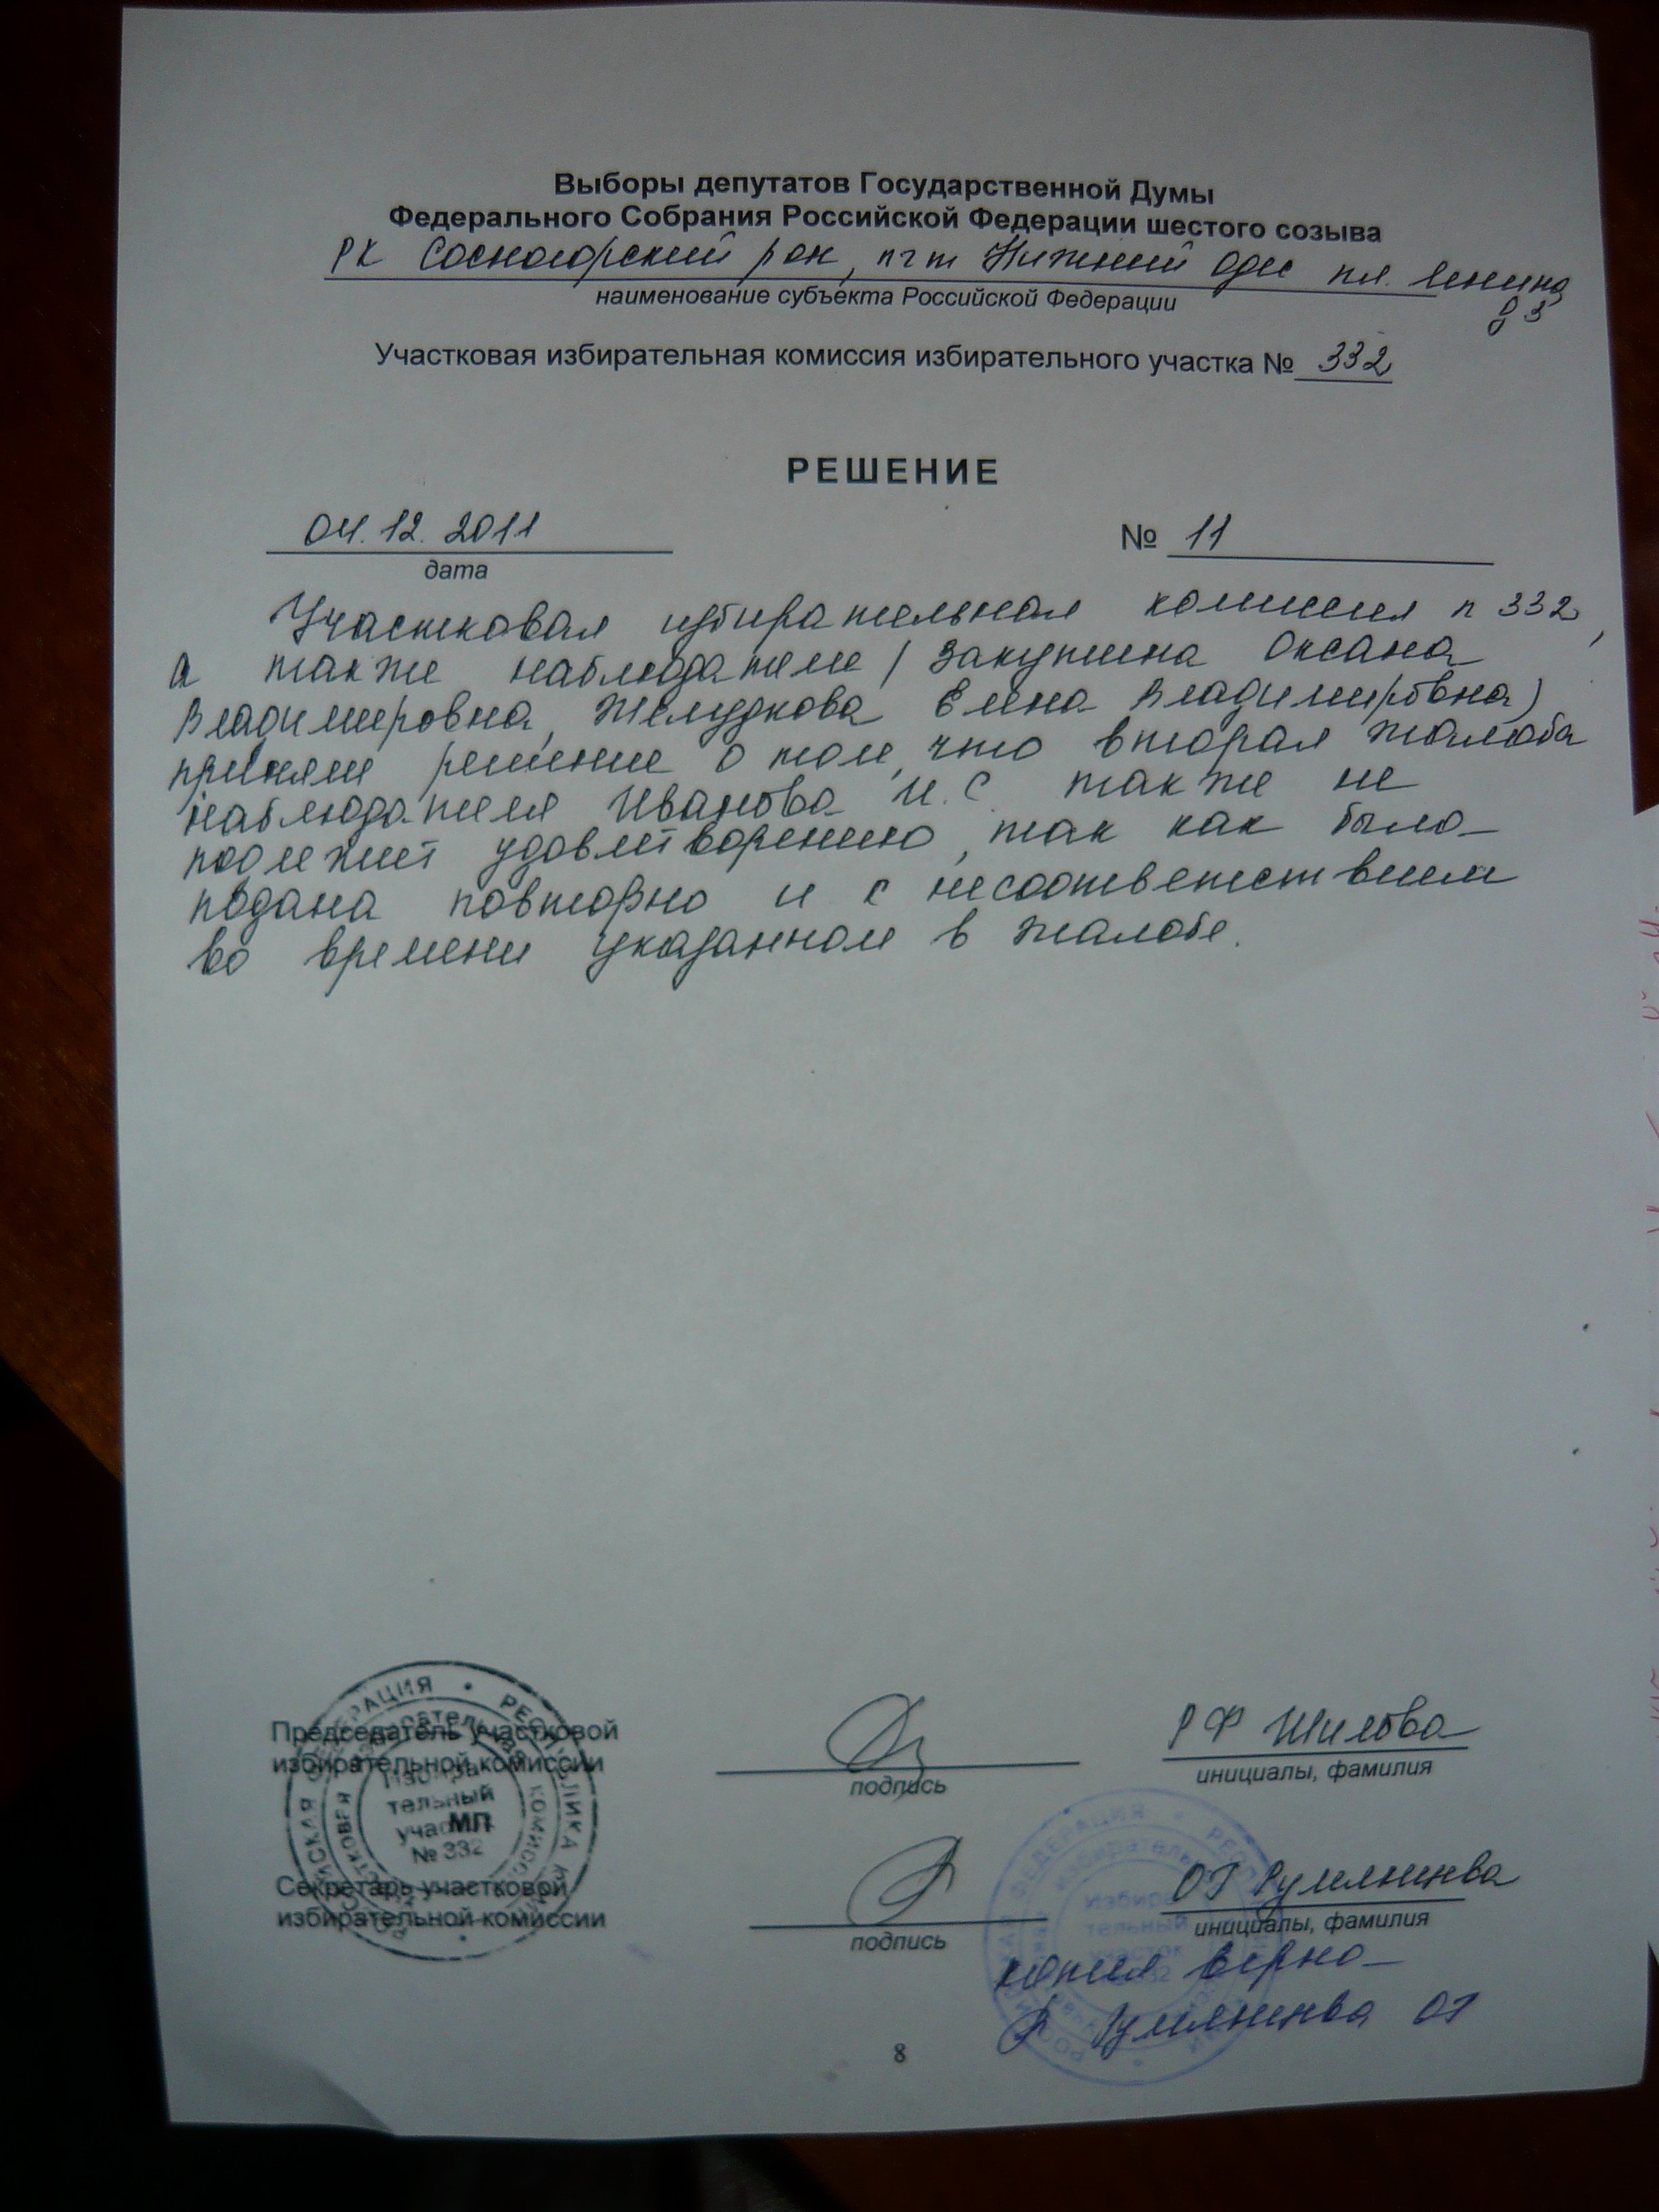 Выборы депутатов Государственной Думы
Федерального Собрания Российской Федерации шестого созыва
РК Сосногорский рон, пгт Нижний Одес пл. Ленина
д 3
наименование субъекта Российской Федерации
Участковая избирательная комиссия избирательного участка № 332
РЕШЕНИЕ
04.12.2011 № 11
дата
Участковая избирательная комиссия п 332,
а также наблюдатели (Закупшина Оксана
Владимировна, Желудкова Елена Владимировна)
приняли решение о том, что вторая жалоба
наблюдателя Иванова И.С. также не
подлежит удовлетворению, так как была
подана повторно и с несоответствием
во времени указанном в жалобе.
Председатель участковой
избирательной комиссии
РФ Шилова
подпись инициалы, фамилия
МП
Избира-
тельный
участок
№ 332
Секретарь участковой
избирательной комиссии
ОГ Румянцева
подпись инициалы, фамилия
копия верно
Румянцева ОГ
8